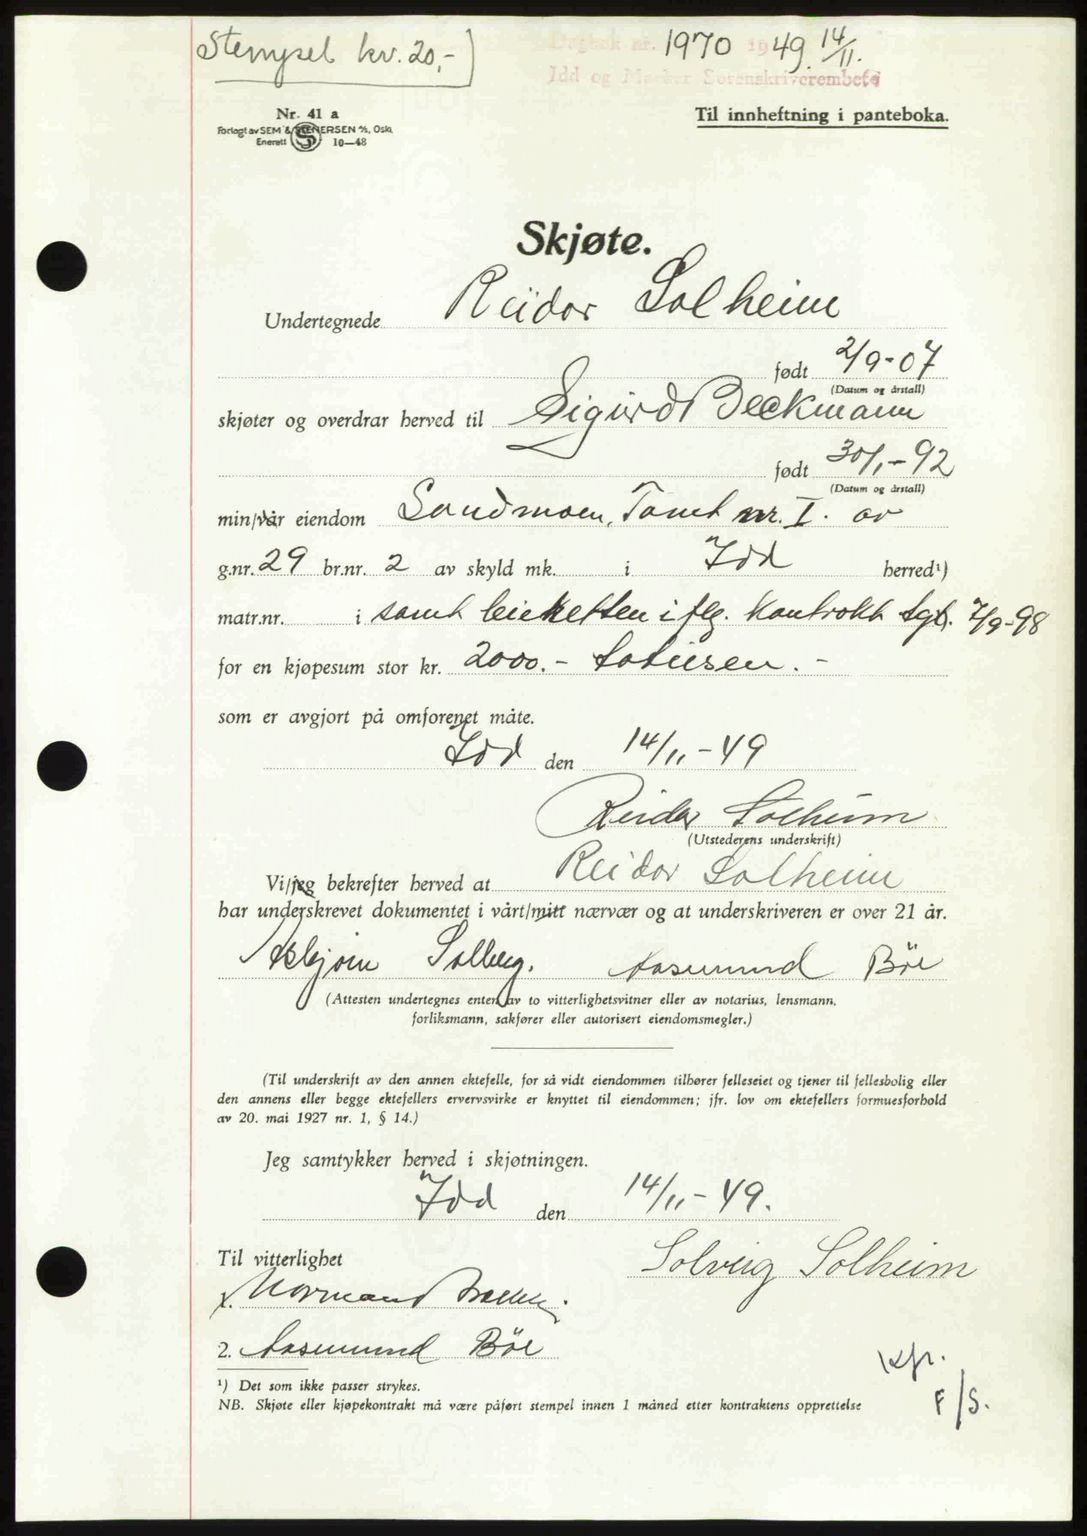 Stempel kr. 20,-
Dagbok nr. 1970 1949 14/11.
Idd og Marker Sorenskriverembete
Nr. 41 a
Forlagt av SEM & STENERSEN A/S, Oslo
Enerett 10—48
Til innheftning i panteboka.
Skjøte.
Undertegnede Reidar Solheim
født 2/9-07
(Datum og årstall)
skjøter og overdrar herved til Sigurd Beckmann
født 30/1-92
(Datum og årstall)
min/vår eiendom Sandmoen, Tomt nr. I. av
g.nr. 29 br.nr. 2 av skyld mk. i Idd herred¹)
matr.nr. i samt leieretten i flg. Kontrakt tgl. 7/9-98
for en kjøpesum stor kr. 2000.- totusen.-
som er avgjort på omforenet måte.
Idd den 14/11-49
Reidar Solheim
(Utstederens underskrift)
Vi/jeg bekrefter herved at Reidar Solheim
har underskrevet dokumentet i vårt/mitt nærvær og at underskriveren er over 21 år.
Asbjørn Solberg. Aasmund Böe
(Attesten undertegnes enten av to vitterlighetsvitner eller av notarius, lensmann,
forliksmann, sakfører eller autorisert eiendomsmegler.)
(Til underskrift av den annen ektefelle, for så vidt eiendommen tilhører felleseiet og tjener til fellesbolig eller
den annens eller begge ektefellers ervervsvirke er knyttet til eiendommen; jfr. lov om ektefellers formuesforhold
av 20. mai 1927 nr. 1, § 14.)
Jeg samtykker herved i skjøtningen.
Idd den 14/11-49.
Til vitterlighet
Solveig Solheim
1. Normann
2. Aasmund Böe
Kfr.
F/S.
¹) Det som ikke passer strykes.
NB. Skjøte eller kjøpekontrakt må være påført stempel innen 1 måned etter kontraktens opprettelse